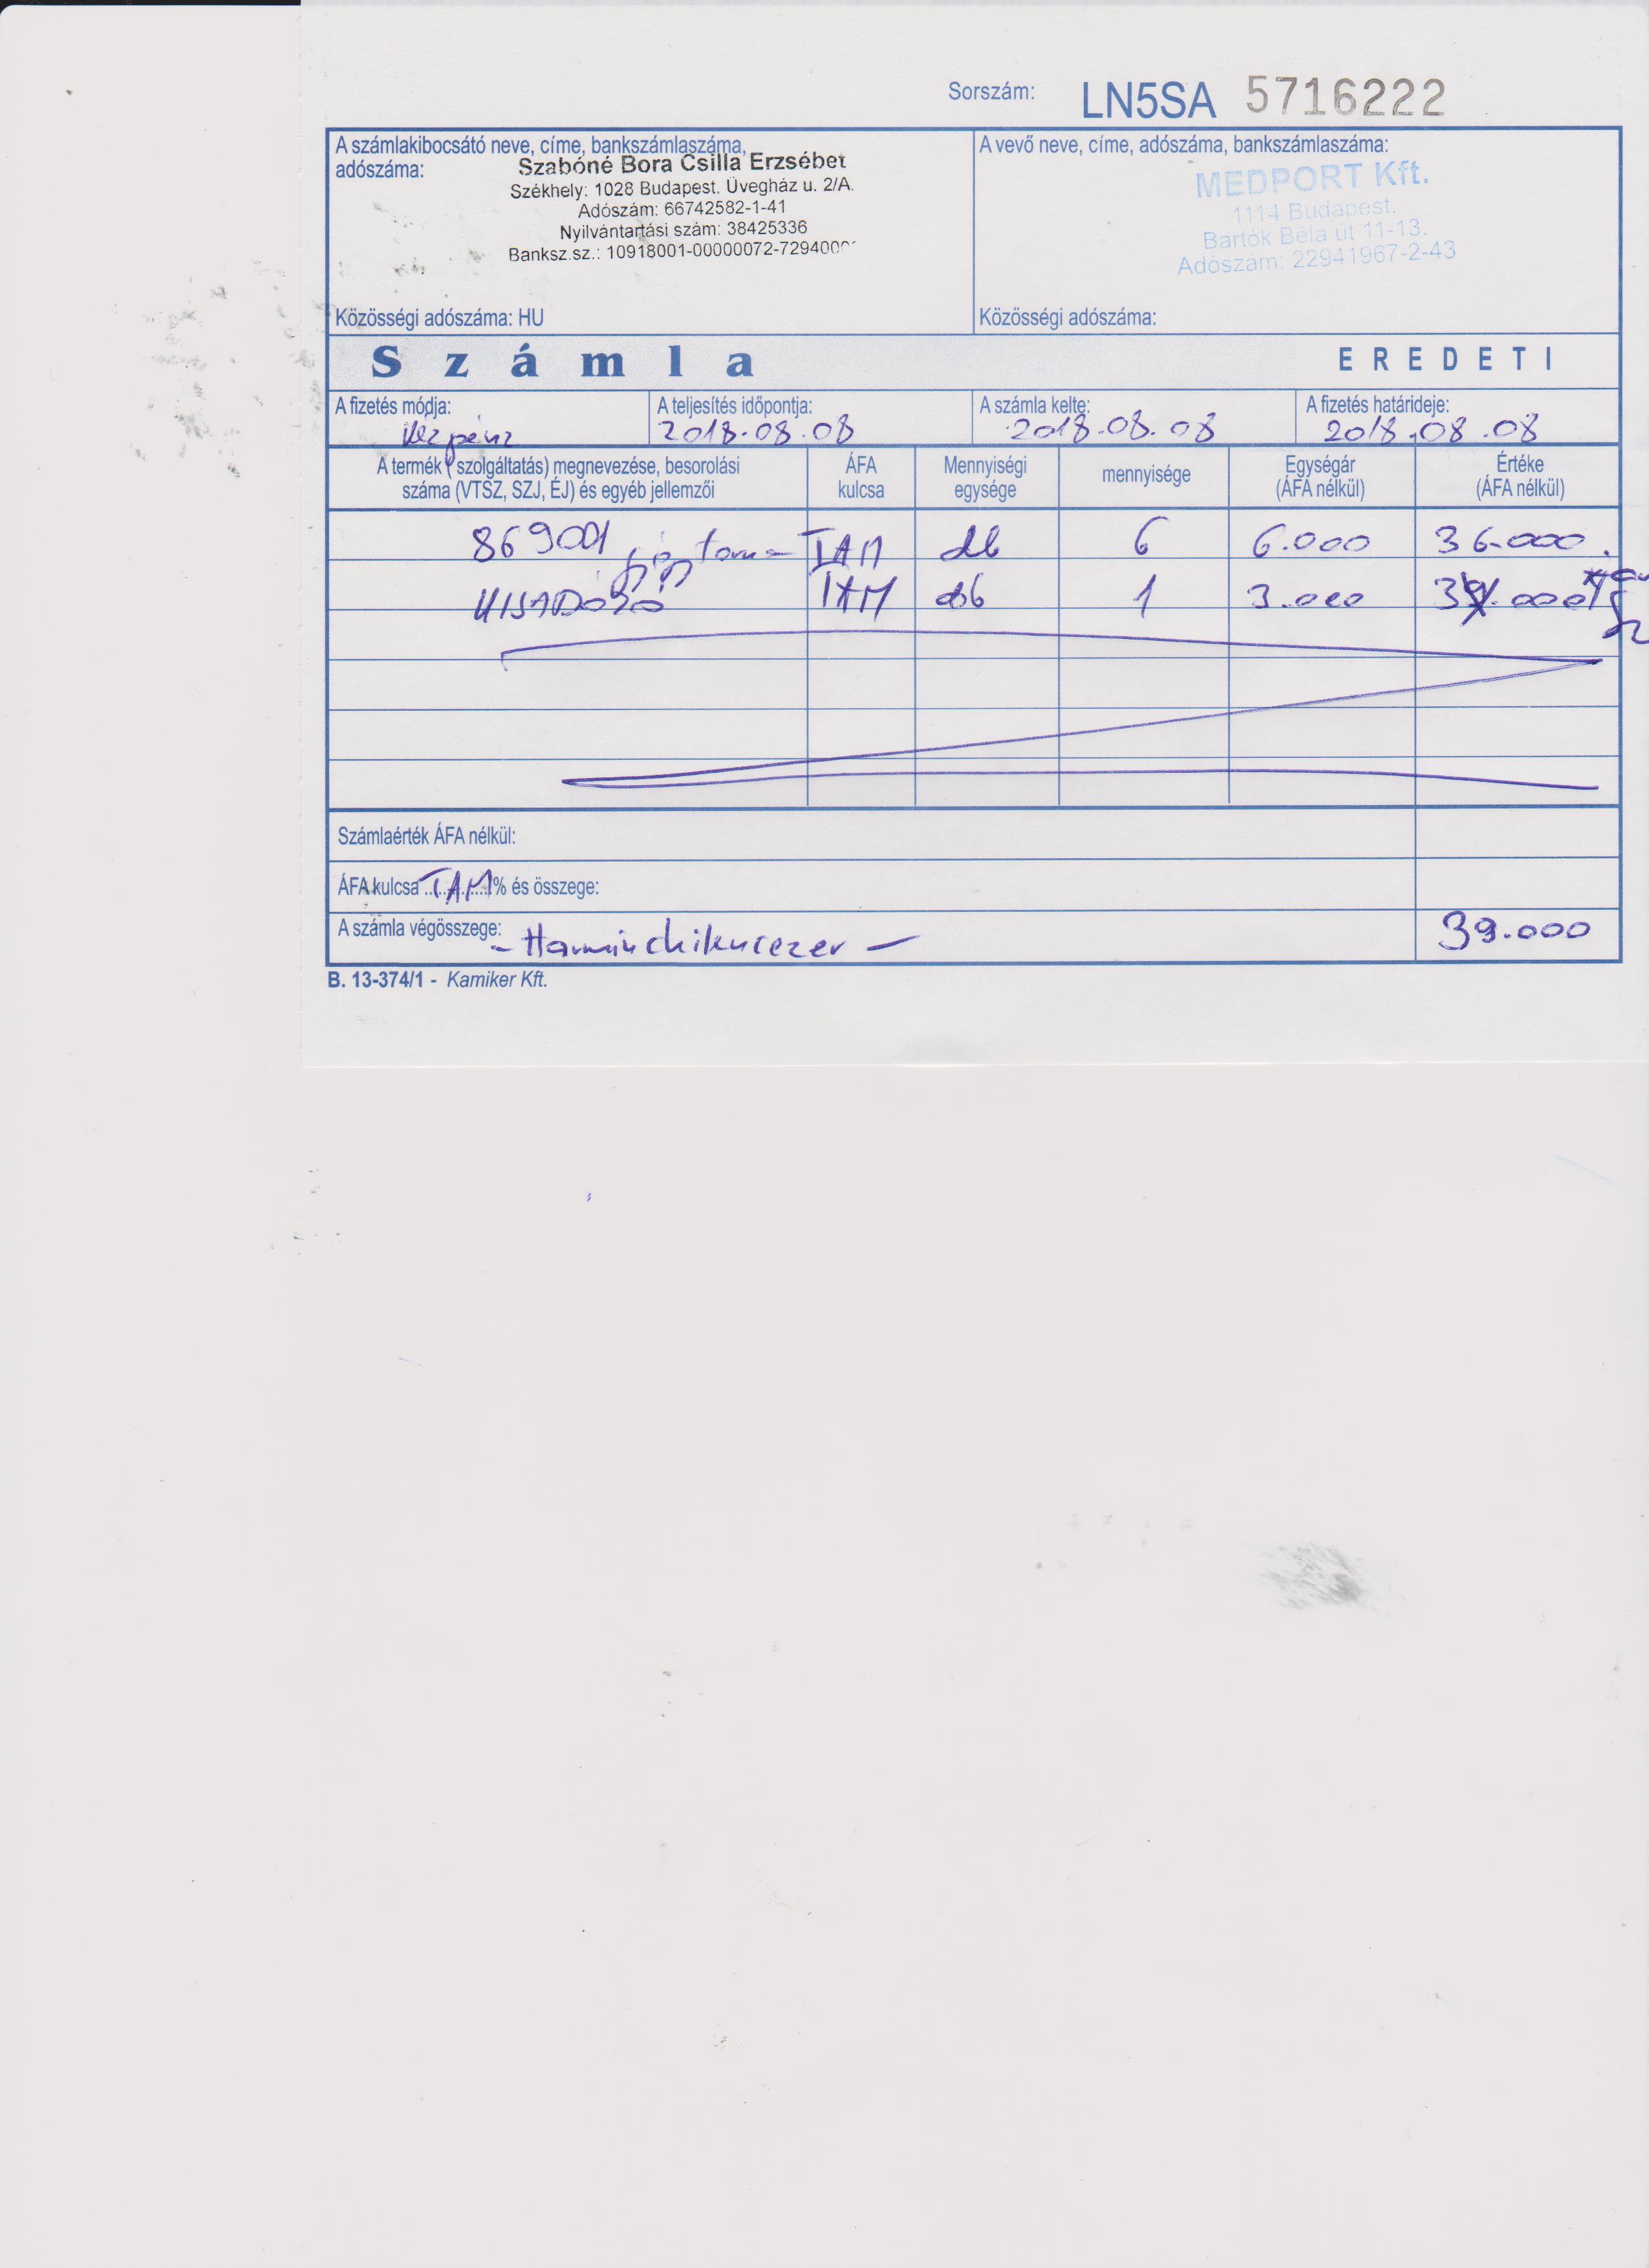 Sorszám: LN5SA 5716222
A számlakibocsátó neve, címe, bankszámlaszáma,
adószáma:
Szabóné Bora Csilla Erzsébet
Székhely: 1028 Budapest, Üvegház u. 2/A.
Adószám: 66742582-1-41
Nyilvántartási szám: 38425336
Banksz.sz.: 10918001-00000072-729400
Közösségi adószáma: HU
A vevő neve, címe, adószáma, bankszámlaszáma:
MEDPORT Kft.
1114 Budapest,
Bartók Béla út 11-13.
Adószám: 22941967-2-43
Közösségi adószáma:
Számla EREDETI
A fizetés módja: A teljesítés időpontja: A számla kelte: A fizetés határideje:
készpénz 2018.08.08 2018.08.08 2018.08.08
A termék (szolgáltatás) megnevezése, besorolási
száma (VTSZ, SZJ, ÉJ) és egyéb jellemzői
ÁFA
kulcsa
Mennyiségi
egysége
mennyisége
Egységár
(ÁFA nélkül)
Értéke
(ÁFA nélkül)
869001 gyógytorna TAM db 6 6.000 36.000
KISADÓZÓ TAM db 1 3.000
Számlaérték ÁFA nélkül:
ÁFA kulcsa TAM % és összege:
A számla végösszege: - Harminckilencezer - 39.000
B. 13-374/1 - Kamiker Kft.